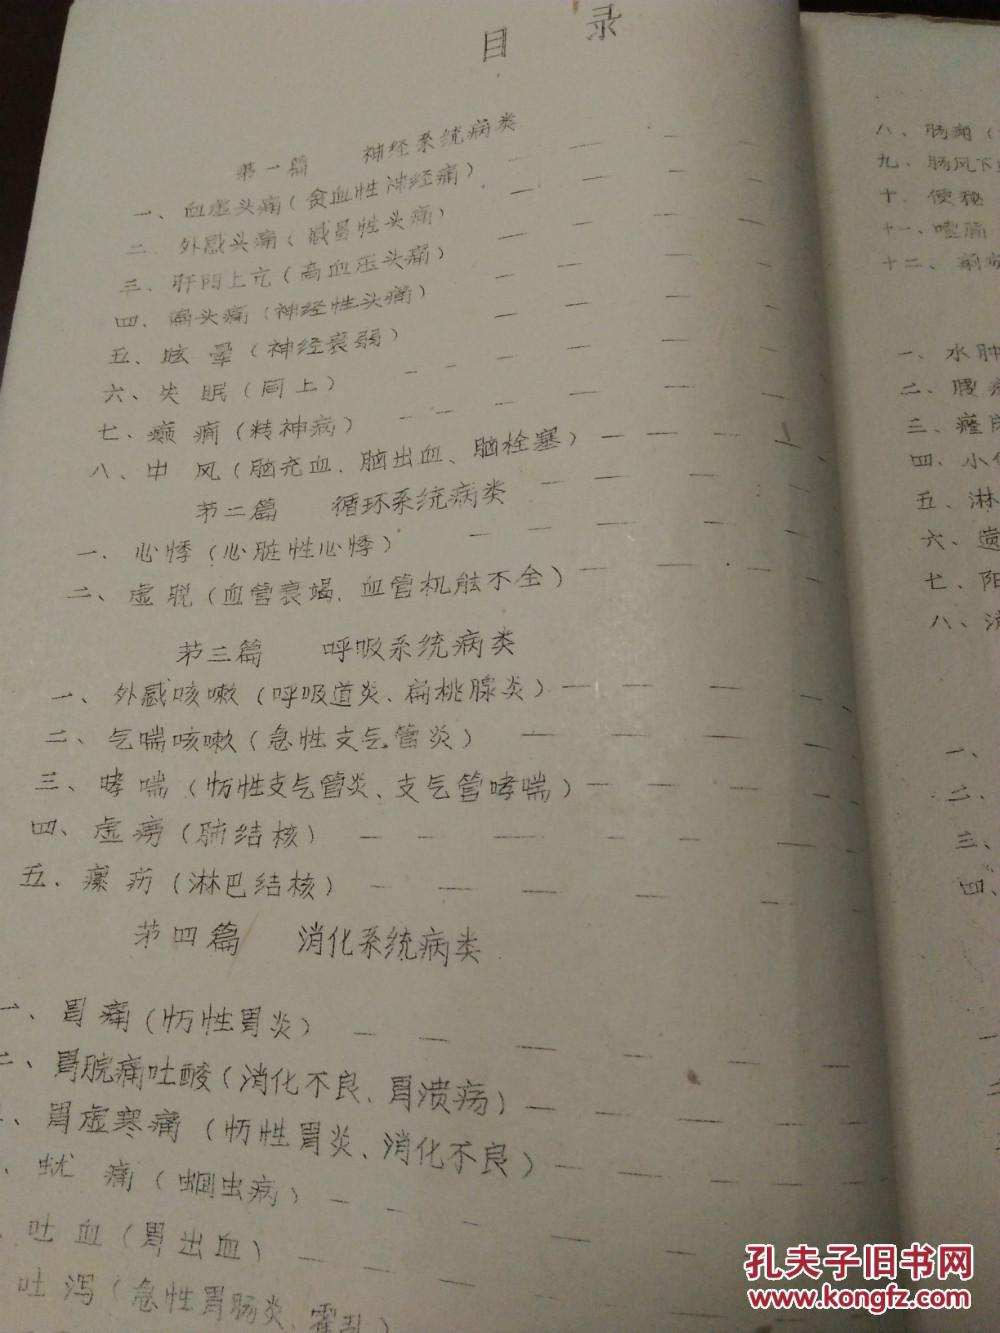 目 录
第一篇 神经系统病类
一、血虚头痛(贫血性神经痛)
二、外感头痛(感冒性头痛)
三、肝阳上亢(高血压头痛)
四、偏头痛(神经性头痛)
五、眩晕(神经衰弱)
六、失眠(同上)
七、癫痫(精神病)
八、中风(脑充血、脑出血、脑栓塞)
第二篇 循环系统病类
一、心悸(心脏性心悸)
二、虚脱(血管衰竭、血管机能不全)
第三篇 呼吸系统病类
一、外感咳嗽(呼吸道炎、扁桃腺炎)
二、气喘咳嗽(急性支气管炎)
三、哮喘(忄万性支气管炎、支气管哮喘)
四、虚痨(肺结核)
五、瘰疬(淋巴结核)
第四篇 消化系统病类
一、胃痛(忄万性胃炎)
二、胃脘痛吐酸(消化不良、胃溃疡)
胃虚寒痛(忄万性胃炎、消化不良)
虫尤痛(蛔虫病)
吐血(胃出血)
吐泻(急性胃肠炎、霍乱)
八、肠痈(
九、肠风下
十、便秘
十一、噎膈
十二、
一、水肿
二、腰
三、癃
四、小
五、淋
六、遗
七、阳
八、
一、
二、
三、
四、
孔夫子旧书网
www.kongfz.com